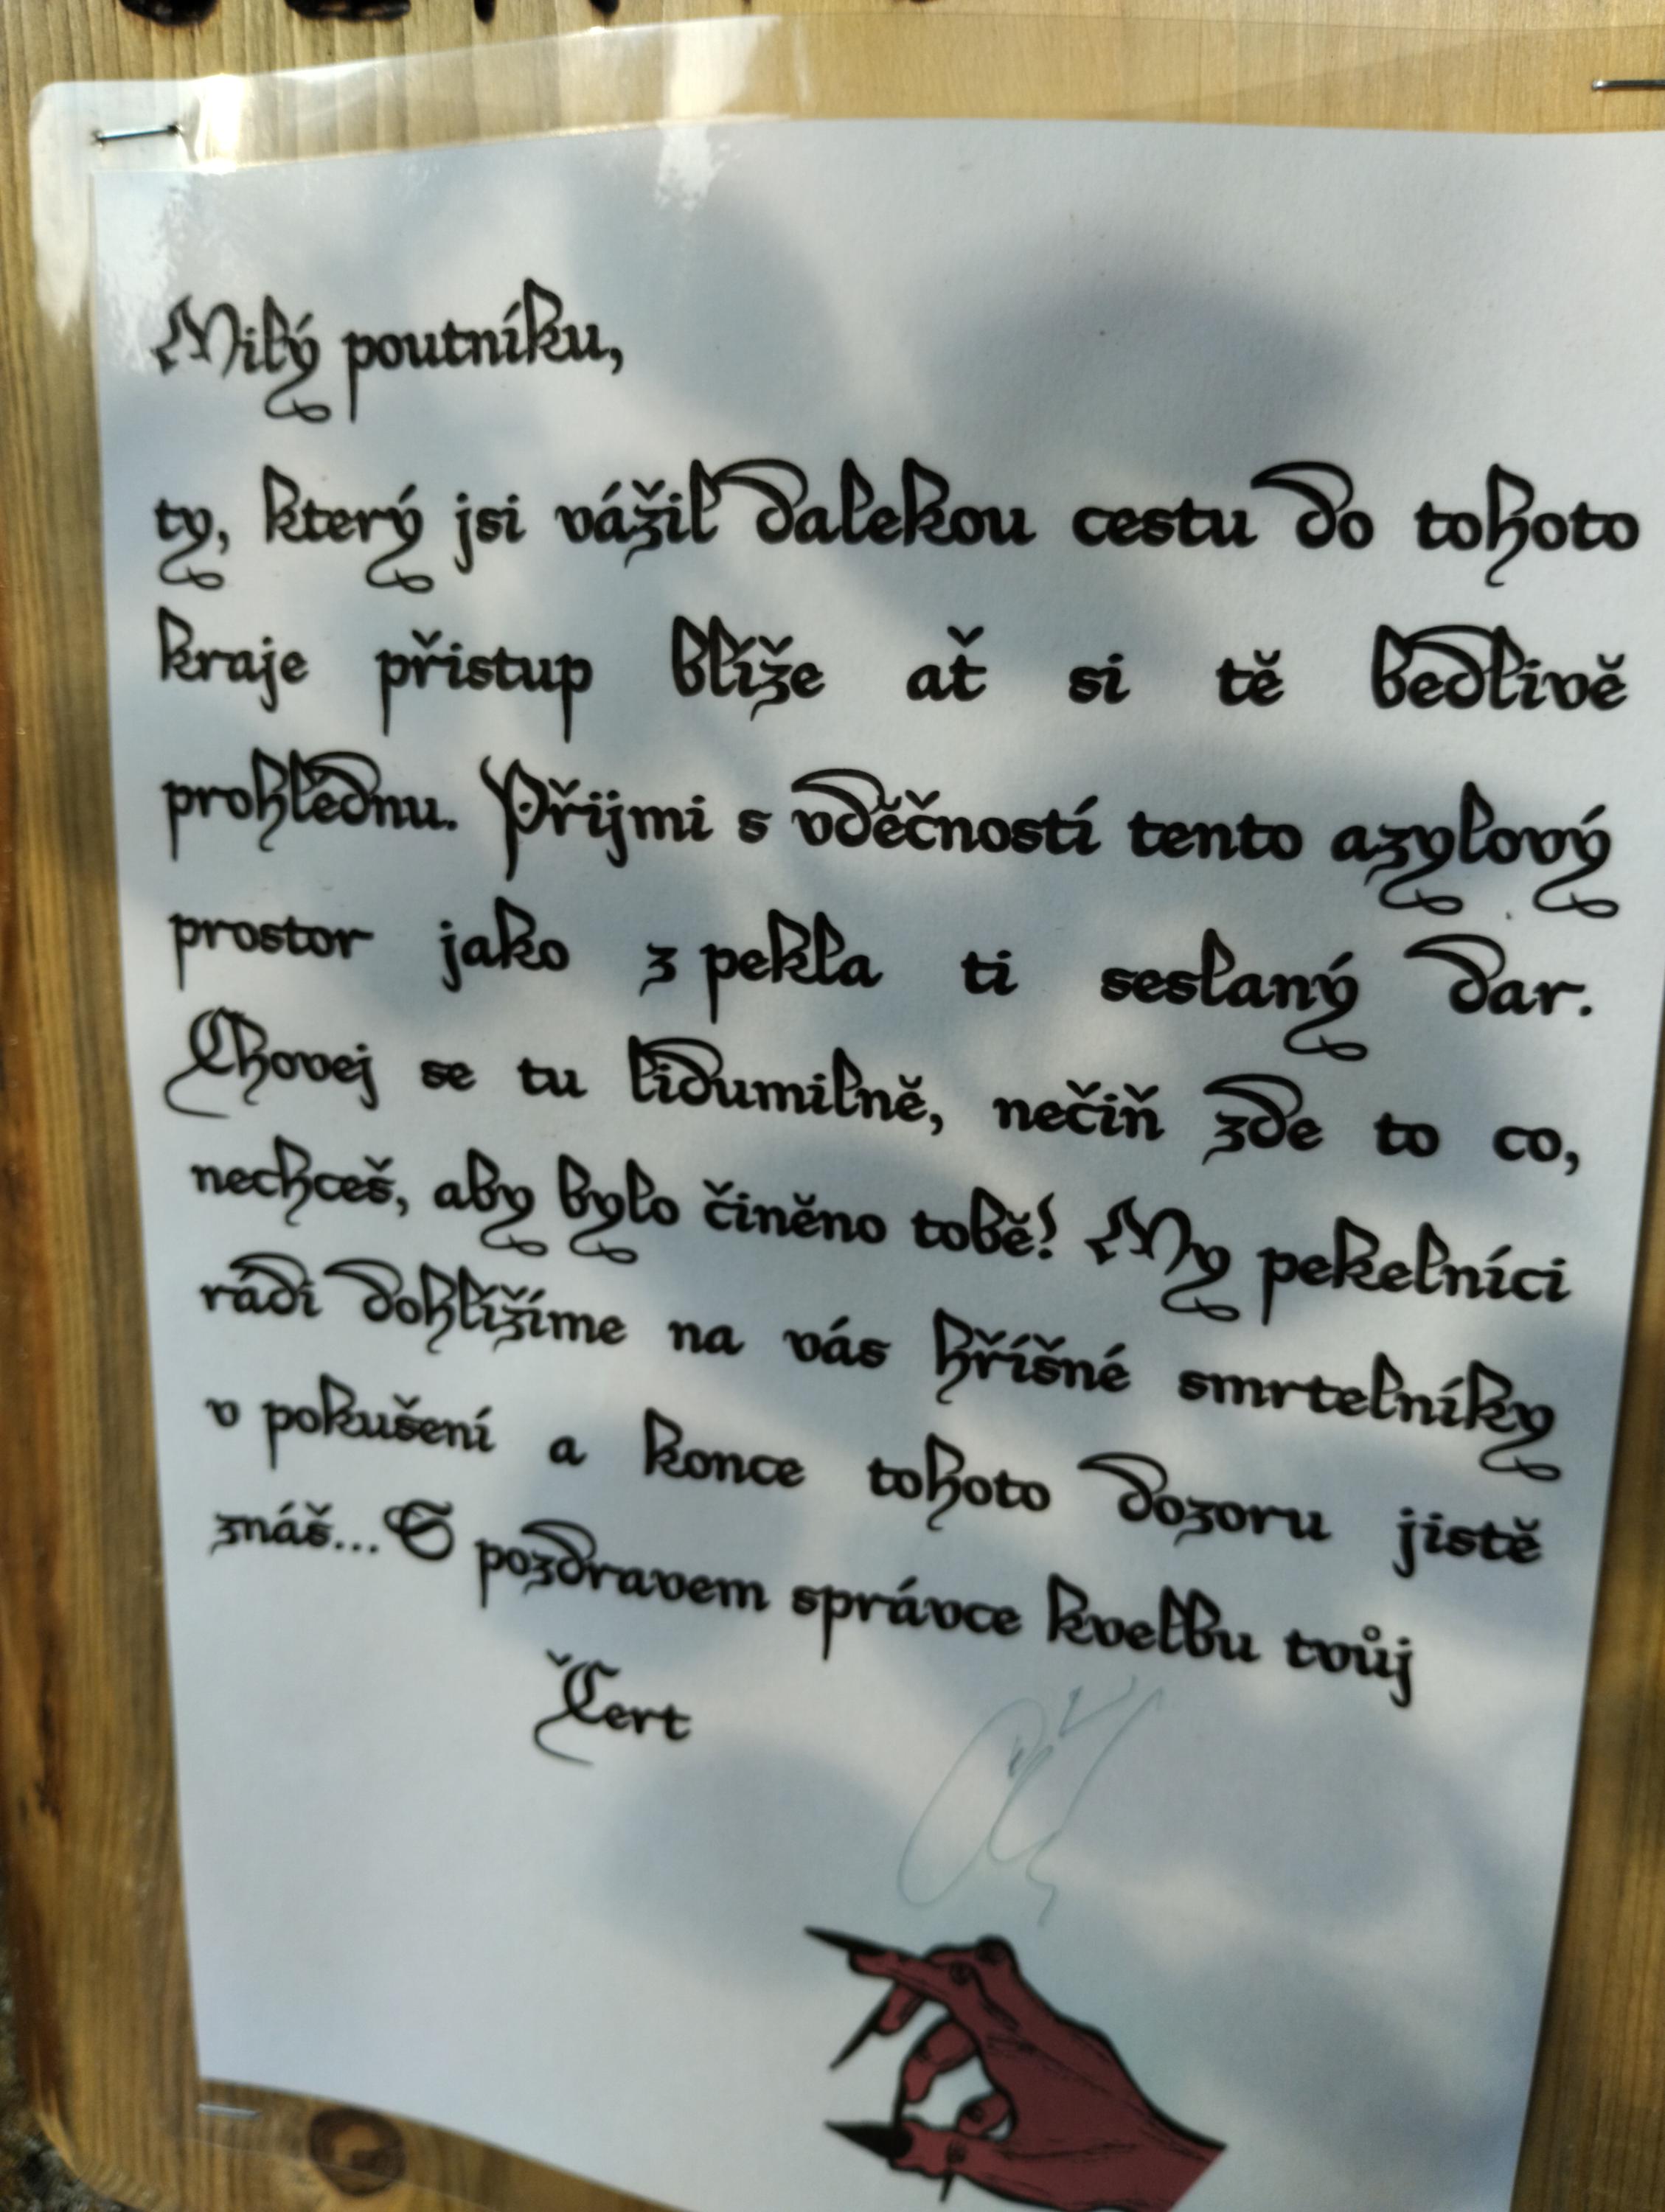 Milý poutníku,
ty, který jsi vážil dalekou cestu do tohoto
kraje přistup blíže ať si tě bedlivě
prohlédnu. Přijmi s vděčností tento azylový
prostor jako z pekla ti seslaný dar.
Chovej se tu lidumilně, nečiň zde to co,
nechceš, aby bylo činěno tobě! My pekelníci
rádi dohlížíme na vás hříšné smrtelníky
v pokušení a konce tohoto dozoru jistě
znáš... S pozdravem správce kvelbu tvůj
Čert